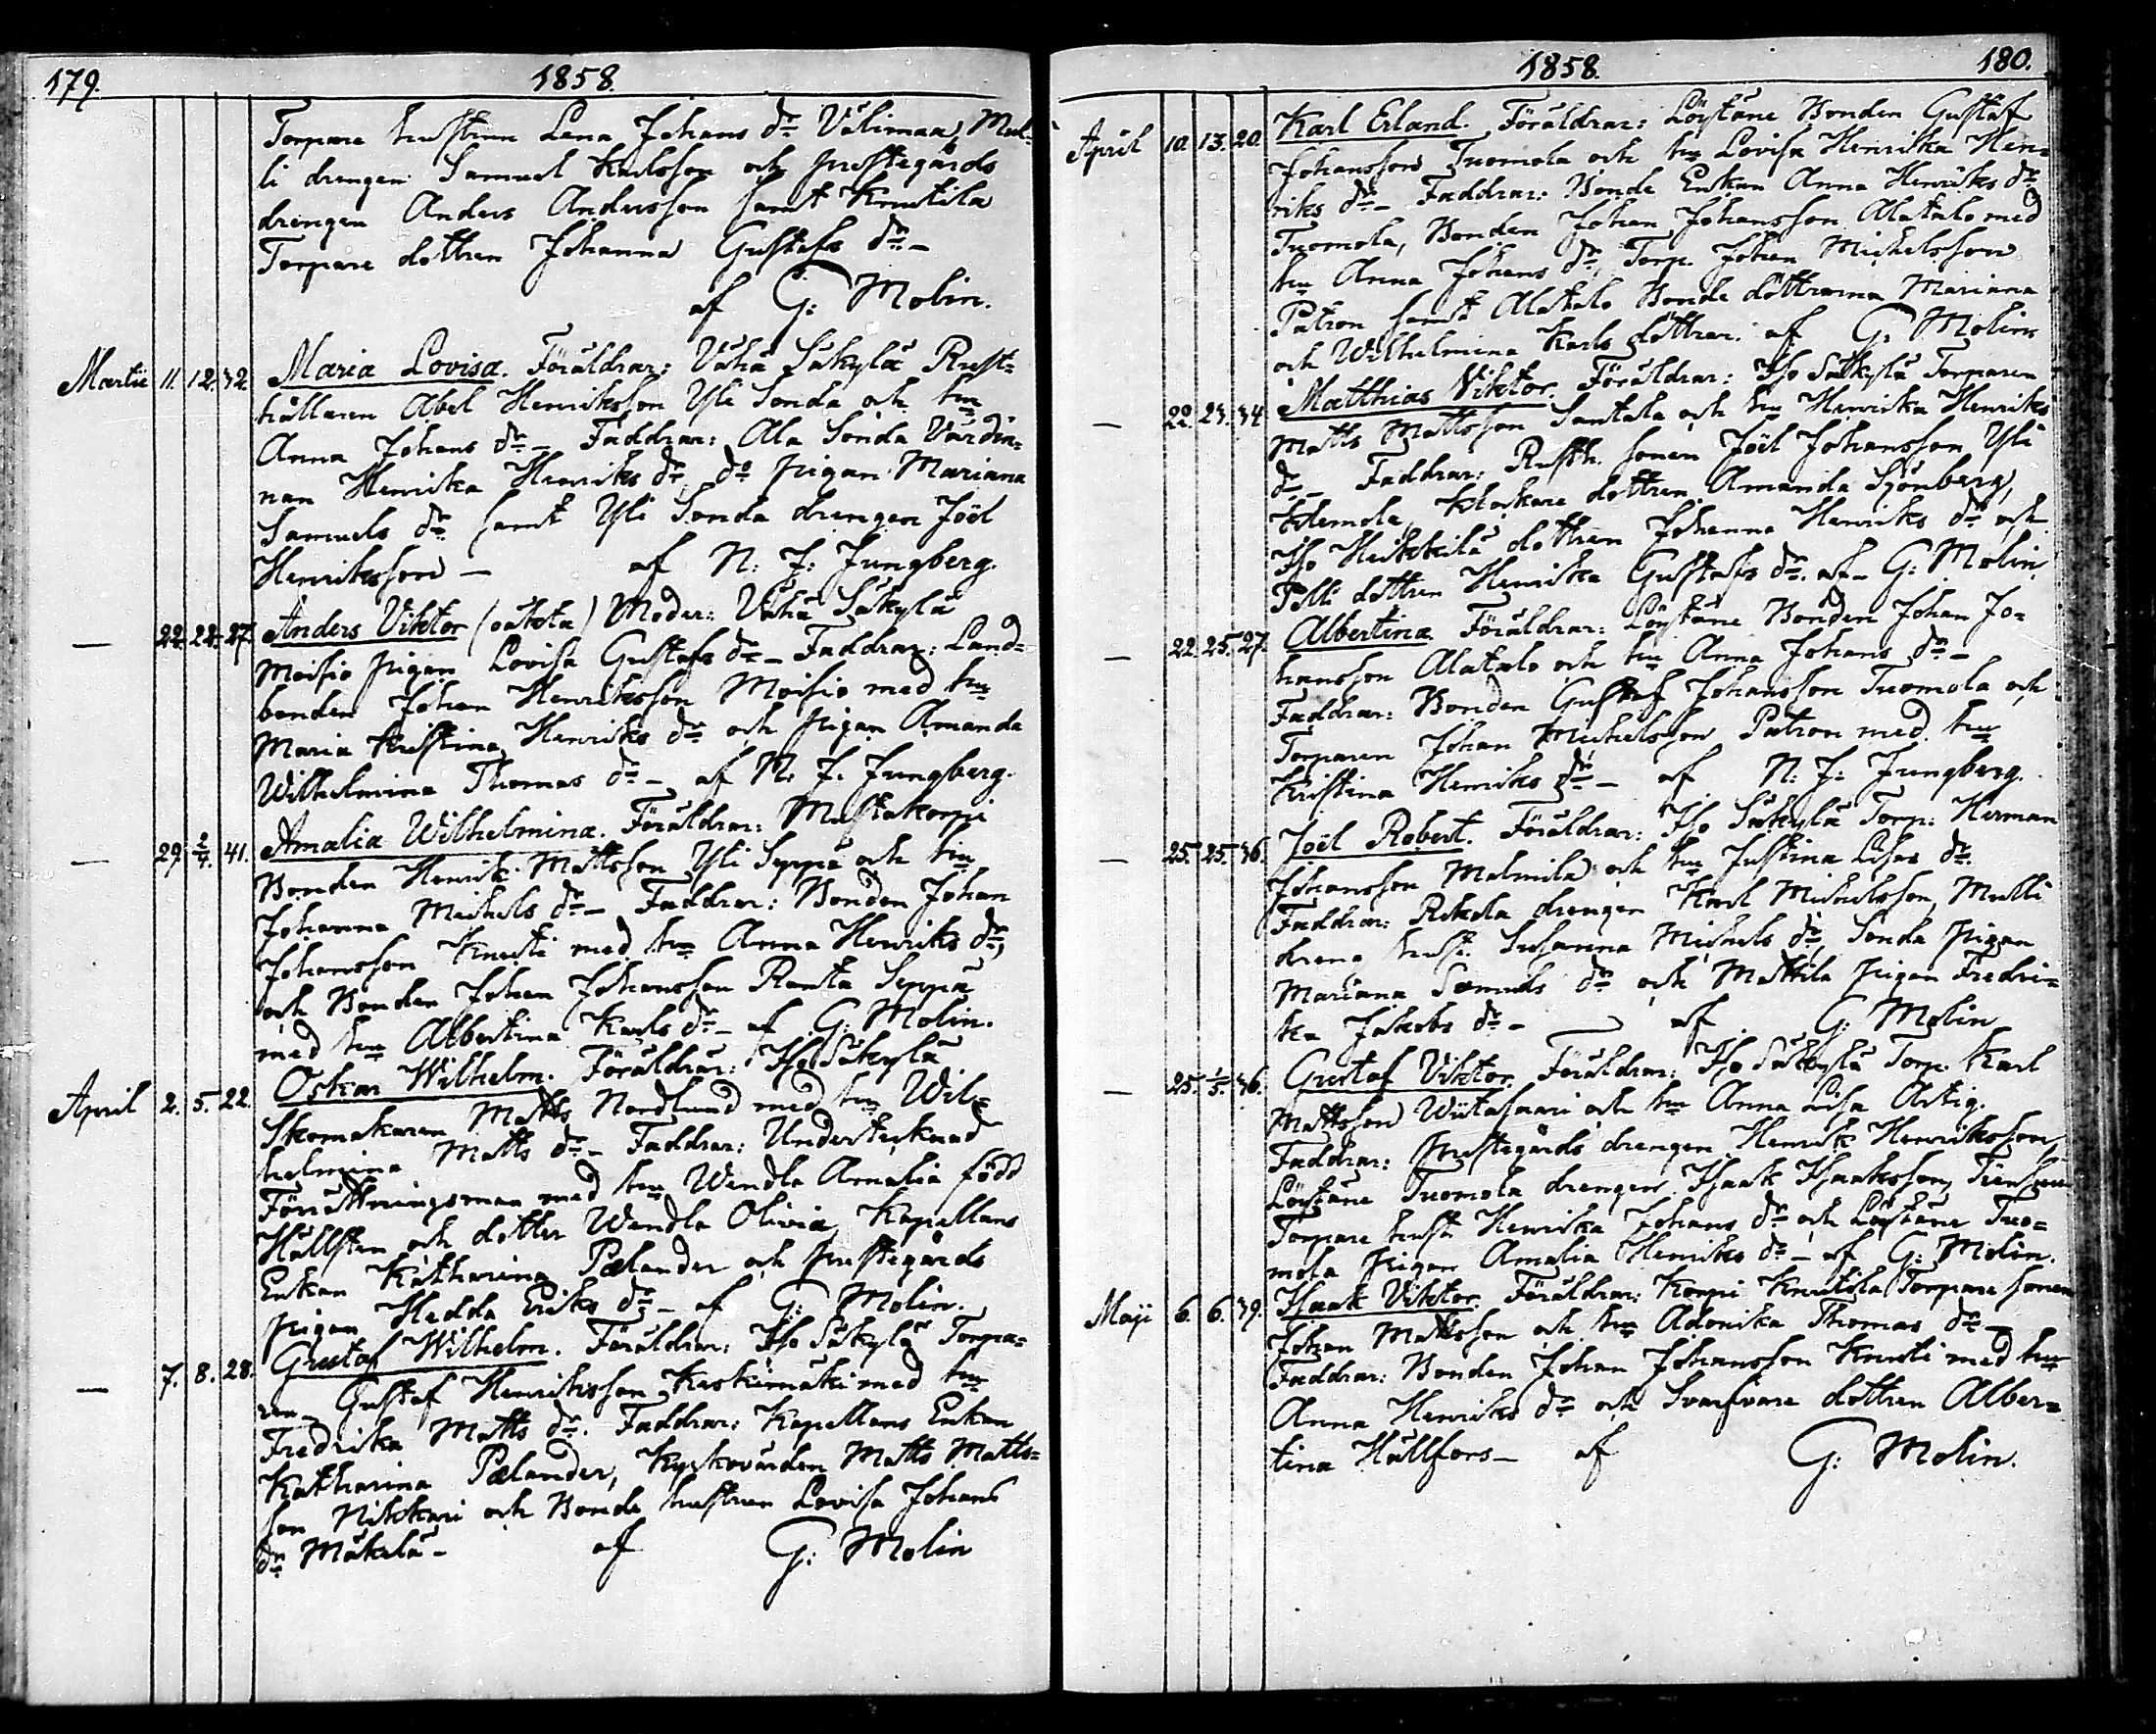 179. 1858.
Torpare hustrun Lena Johans dr Välimaa, Mul-
li drengen Samuel Karlsson och prestegårds
drengen Anders Andersson samt Knutila
Torpare dottren Johanna Gustafs dr –
af G: Molin.
Martii 11. 12. 32. Maria Lovisa. Föräldrar: Vähä Säkylä Rust-
hållaren Abel Henriksson Yli Sonda och hu
Anna Johans dr – Faddrar: Ala Sonda Värdin-
nan Henrika Henriks dr, do pigan Mariana
Samuels dr samt Yli Sonda drengen Joël
Henriksson – af N: J: Jungberg.
— 22. 22. 27. Anders Viktor (oäkta) Moder: Vähä Säkylä
Moisio pigan Lovisa Gustafs dr – Faddrar: Land-
bonden Johan Henriksson Moisio med hu
Maria Kristina Henriks dr och pigan Amanda
Wilhelmina Thomas dr – af N: J: Jungberg.
— 29. 2/4. 41. Amalia Wilhelmina. Föräldrar: Mustakorpi
Bonden Henrik Mattsson Yli Seppä och hu
Johanna Michels dr – Faddrar: Bonden Johan
Johansson Knuti med hu Anna Henriks dr,
och Bonden Johan Johansson Ranta Seppä
med hu Albertina Karls dr – af G: Molin.
April 2. 5. 22. Oskar Wilhelm. Föräldrar: Iso Säkylä
Skomakaren Matts Nordlund med hu Wil-
helmina Matts dr – Faddrar: Undertecknad
Förrättningsman med hu Wendla Amalia född
Hällsten och dotter Wendla Olivia, Kapellans
Enkan Katharina Pælander och prestegårds
pigan Hedda Eriks dr – af G: Molin.
— 7. 8. 28. Gustaf Wilhelm. Föräldrar: Iso Säkylä Torpa-
ren Gustaf Henriksson Keskimäki med hu
Fredrika Matts dr. Faddrar: Kapellans Enkan
Katharina Pælander, Kyrkovärden Matts Matts-
son Nikkari och Bonde hustrun Lovisa Johans
dr Mäkelä – af G: Molin
1858. 180.
April 10. 13. 20. Karl Erland. Föräldrar: Löytäne Bonden Gustaf
Johansson Tuomola och hu Lovisa Henrika Hen-
riks dr – Faddrar: Bonde Enkan Anna Henriks dr
Tuomola, Bonden Johan Johansson Alatalo med
hu Anna Johans dr, Torp. Johan Michelsson
Patron samt Alatalo Bonde döttrarna Mariana
och Wilhelmina Karls döttrar. af G: Molin
— 22. 23. 34. Matthias Viktor. Föräldrar: Iso Säkylä Torparen
Matts Mattsson Santala och hu Henrika Henriks
dr – Faddrar: Rusth. sonen Joël Johansson Yli
Klemola, Klockare dottren Amanda Sjönberg,
Iso Heikkilä dottren Johanna Henriks dr och
Pilli dottren Henrika Gustafs dr. af – G: Molin.
— 22. 25. 27. Albertina. Föräldrar: Löytäne Bonden Johan Jo-
hansson Alatalo och hu Anna Johans dr –
Faddrar: Bonden Gustaf Johansson Tuomola och
Torparen Johan Michelsson Patron med hu
Kristina Henriks dr – af N: J: Jungberg.
— 25. 25. 36. Joël Robert. Föräldrar: Iso Säkylä Torp. Herman
Johansson Malmila och hu Justina Lisas dr
Faddrar: Rekola drengen Karl Michelsson, Mulli
dreng hust. Susanna Michels dr, Sonda pigan
Mariana Samuels dr och Mattila pigan Fredri-
ka Jakobs dr – af G: Molin
— 25. 1/5. 36. Gustaf Viktor. Föräldrar: Iso Säkylä Torp. Karl
Mattsson Wiitasaari och hu Anna Lisa Artig.
Faddrar: prestegårds drengen Henrik Henriksson,
Löytäne Tuomola drengen Isaak Isaaksson,
Torpare hust. Henrika Johans dr och Löytäne Tuo-
mola pigan Amalia Henriks dr – af G: Molin.
Maji 6. 6. 39. Isaak Viktor. Föräldrar: Korpi Knutila Torpare sonen
Johan Mattsson och hu Adonika Thomas dr –
Faddrar: Bonden Johan Johansson Knuti med hu
Anna Henriks dr och Svarfvare dottren Alber-
tina Hällfors – af G: Molin.